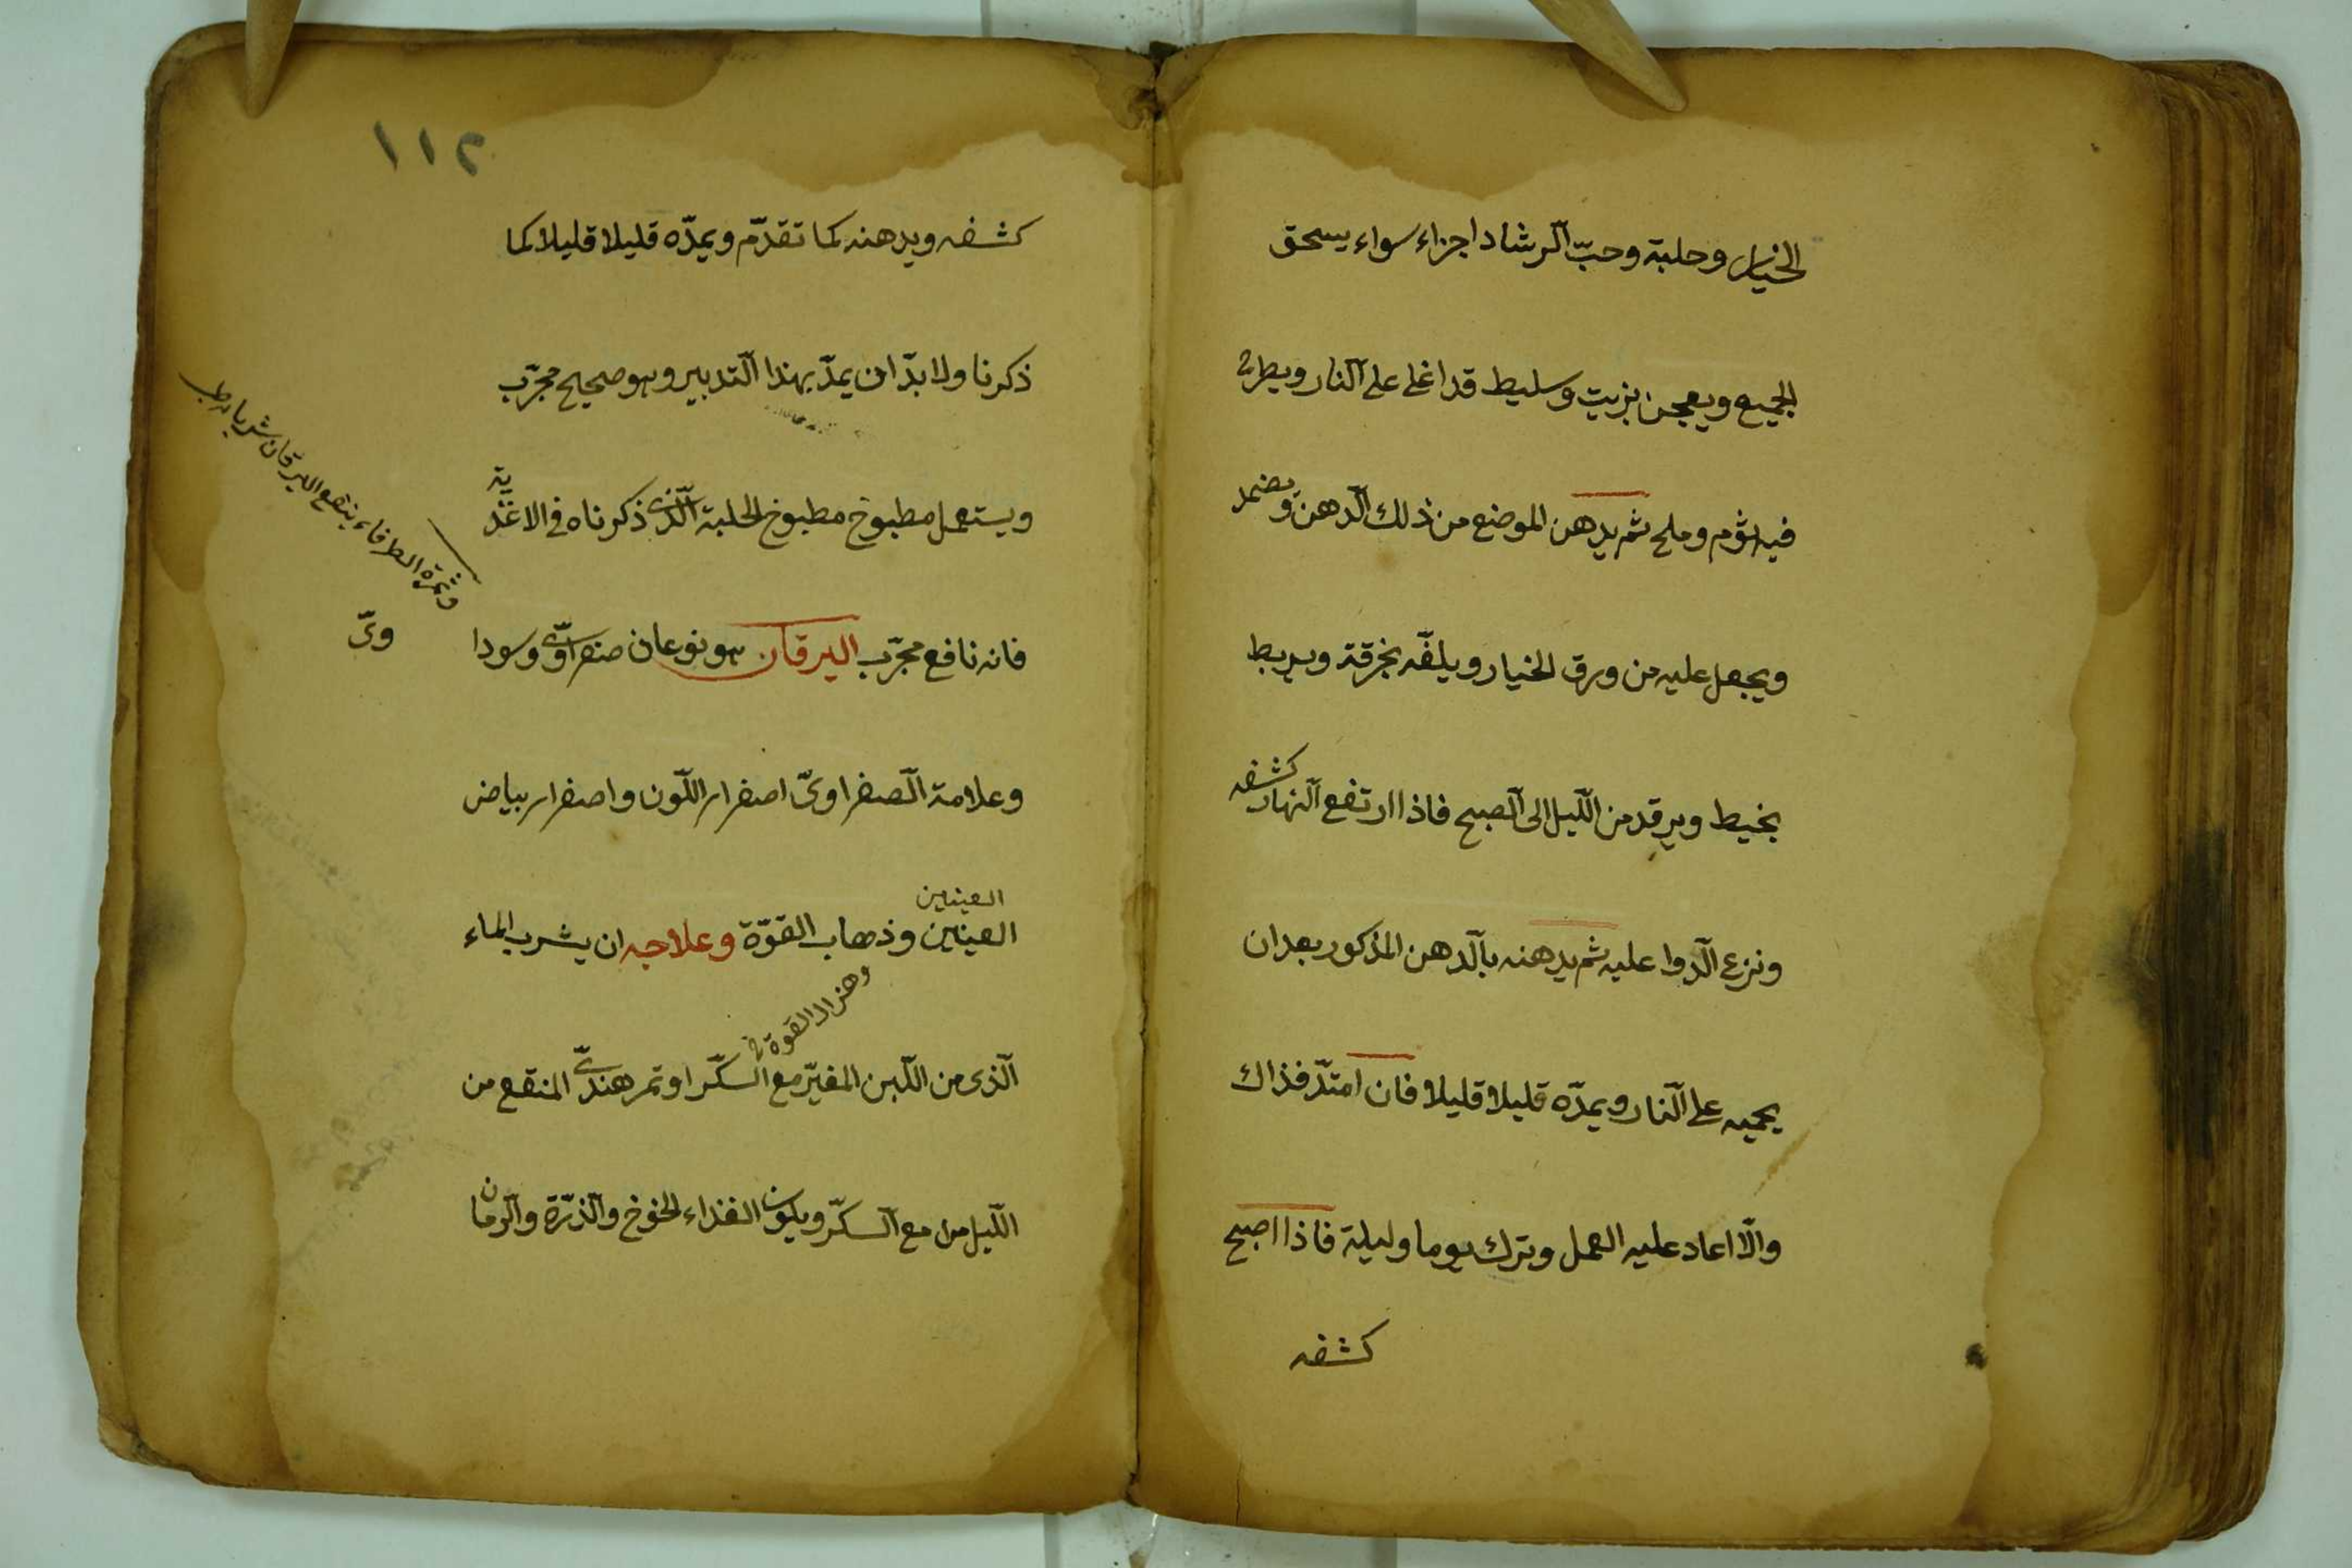 الخيار وحلبة وحبّ الرشاد اجزاء سواء يسحق
الجميع ويعجن بزيت وسليط قد اغلى على النار ويطرح
فيه ثوم وملح ثم يدهن الموضع من ذلك الدهن ويضمد
ويجعل عليه من ورق الخيار ويلفّه بخرقة ويربط
بخيط ويرقد من اللّيل الى الصبح فاذا ارتفع النهار كشفه
ونزع الدوا عليه ثم يدهنه بالدهن المذكور بعد ان
يحميه على النار ويمدّه قليلا قليلا فان امتدّ فذاك
والّا اعاد عليه العمل وترك يوما وليلة فاذا اصبح
كشفه
١١٢
كشفه ويدهنه كما تقدّم ويمدّه قليلا قليلا كما
ذكرنا ولا بدّ ان يمدّ بهذا التدبير وهو صحيح مجرّب
ويستعمل مطبوخ مطبوخ الحلبة الّذى ذكرناه فى الاغذية
فانه نافع مجرّب اليرقان هو نوعان صفراوىّ وسودا
وىّ
وثمرة الطرفاء ينفع اليرقان شربا
وعلامة الصفراوىّ اصفرار اللّون واصفرار بياض
العينين
العينين وذهاب القوّة وعلاجه ان يشرب الماء
القوة
الّذى من اللّبن المغيّر مع السكّر او تمر هندىّ المنقع من
اللّيل من مع السكّر ويكون الغذاء الخوخ والذرّة والرمان